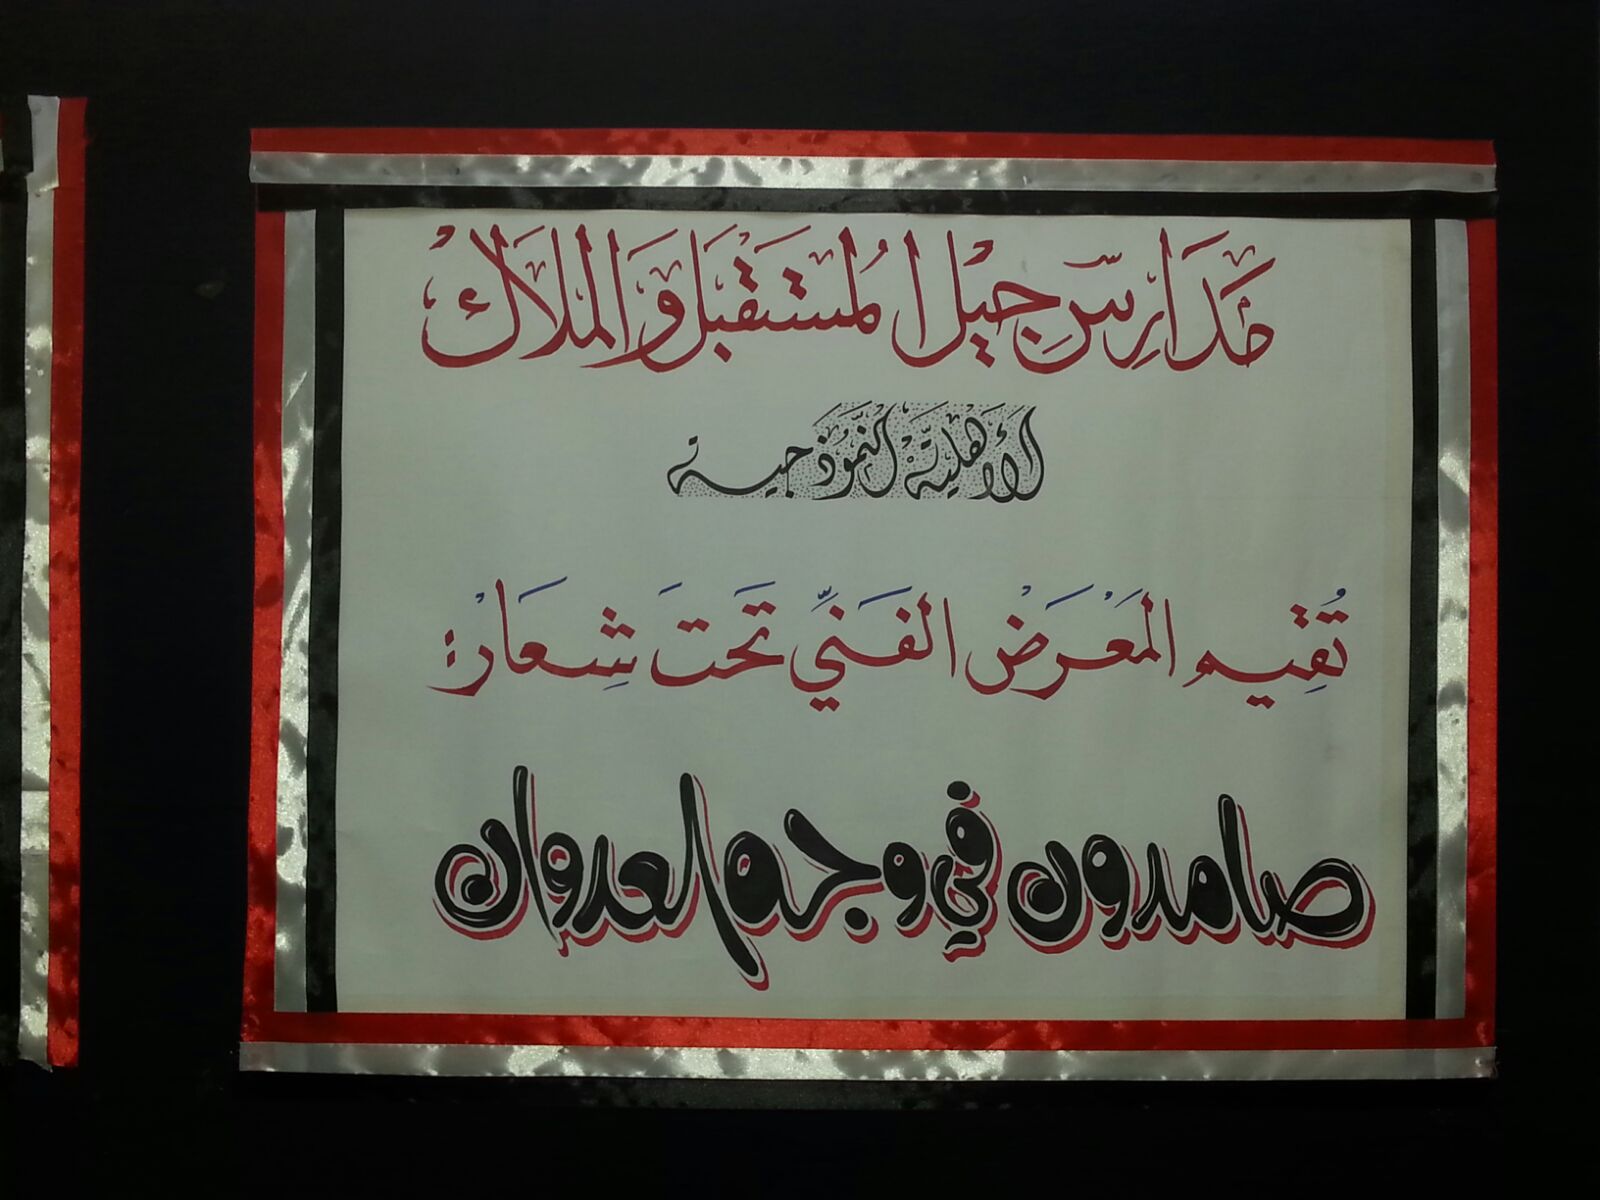 مَدَارِسِ جِيْل المُسْتَقبَل وَالمَلَاكْ
الأَهْلِيَّةْ النَّمُوْذَجية
تُقِيم المَعْرَضْ الفَنِّي تَحْتَ شِعَارْ:
صامدون في وجه العدوان